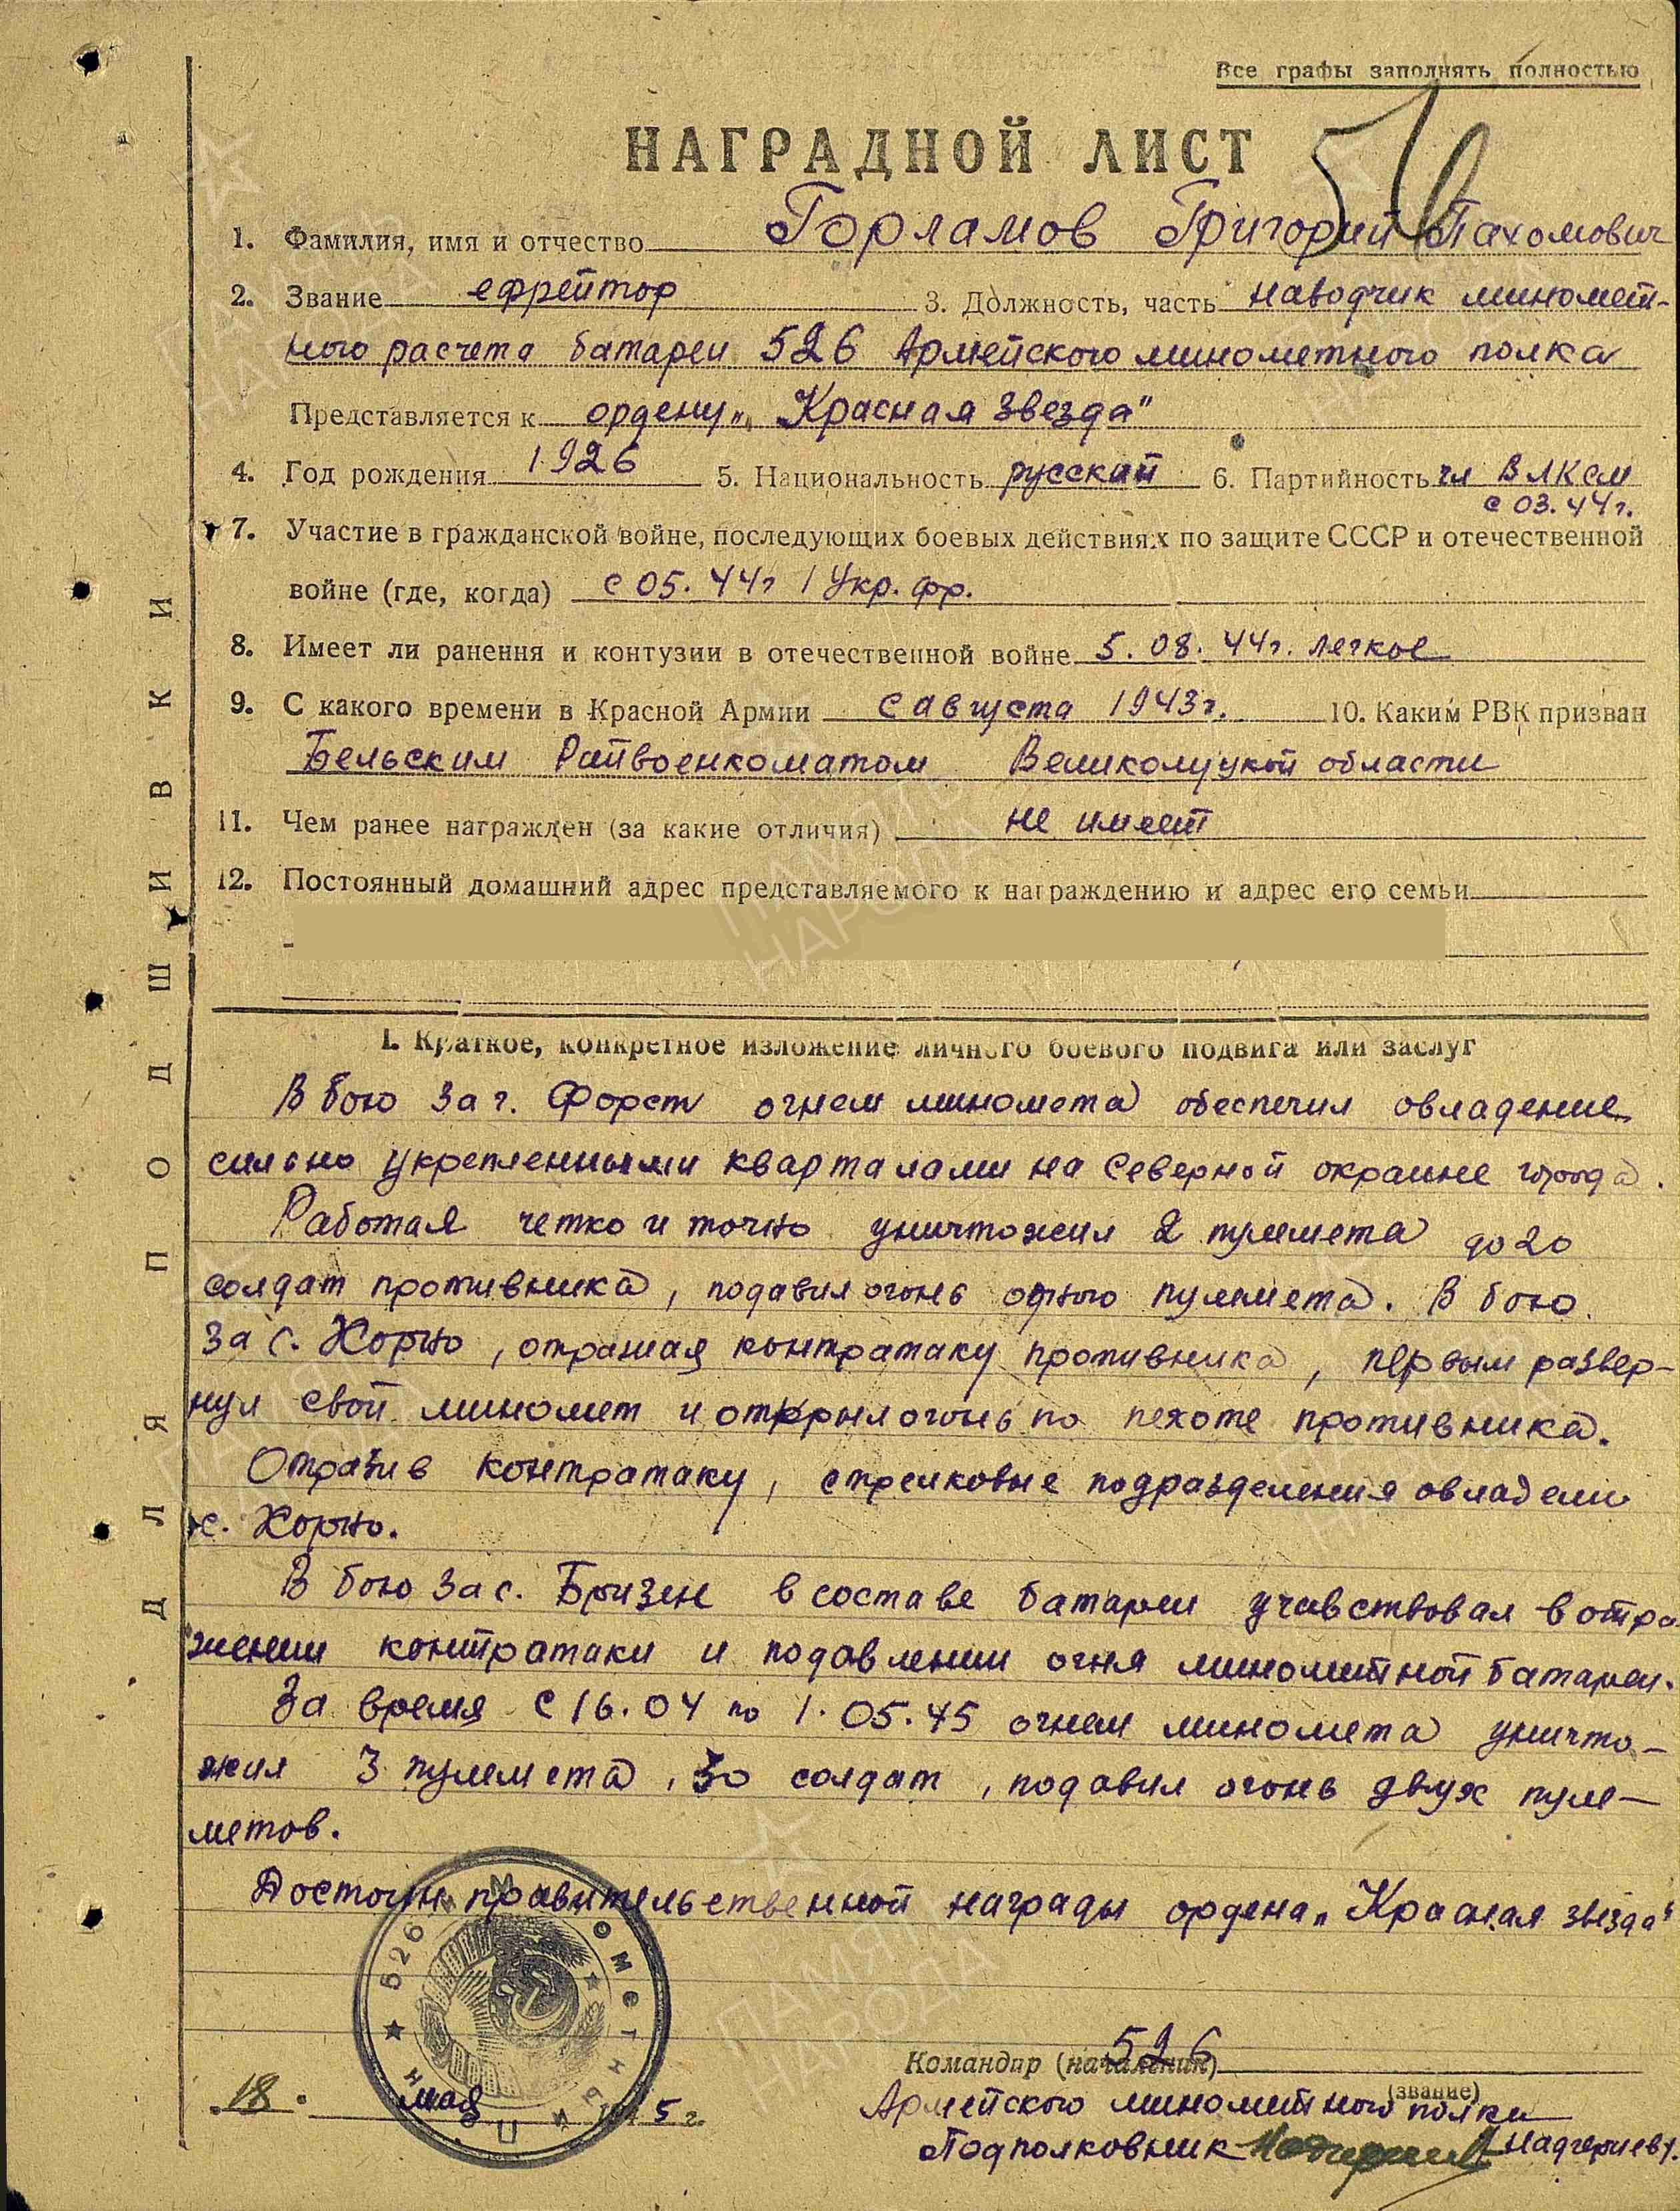 Все графы заполнять полностью
НАГРАДНОЙ ЛИСТ
1. Фамилия, имя и отчество Горламов Григорий Пахомович
2. Звание ефрейтор 3. Должность, часть наводчик миномет-
ного расчета батареи 526 Армейского минометного полка
Представляется к ордену „Красная звезда"
4. Год рождения 1926 5. Национальность русский 6. Партийность чл ВЛКСМ
с 03.44г.
7. Участие в гражданской войне, последующих боевых действиях по защите СССР и отечественной
войне (где, когда) с 05.44г 1 Укр. фр.
8. Имеет ли ранения и контузии в отечественной войне 5.08.44г. легкое
9. С какого времени в Красной Армии с августа 1943г. 10. Каким РВК призван
Бельским Райвоенкоматом Великолукской области
11. Чем ранее награжден (за какие отличия) не имеет
12. Постоянный домашний адрес представляемого к награждению и адрес его семьи
I. Краткое, конкретное изложение личного боевого подвига или заслуг
В бою за г. Форст огнем миномета обеспечил овладение
сильно укрепленными кварталами на Северной окраине города.
Работая четко и точно уничтожил 2 пулемета до 20
солдат противника, подавил огонь одного пулемета. В бою
за с. Хорно, отражая контратаку противника, первым развер-
нул свой миномет и открыл огонь по пехоте противника.
Отразив контратаку, стрелковые подразделения овладели
с. Хорно.
В бою за с. Бризен в составе батареи учавствовал в отра
жении контратаки и подавлении огня минометной батареи.
За время с 16.04 по 1.05.45 огнем миномета уничто-
жил 3 пулемета, 30 солдат, подавил огонь двух пуле-
метов.
Достоин правительственной награды ордена „Красная звезда"
526 МИНОМЕТНЫЙ П
526
Командир (начальник)
(звание)
18. мая 1945 г.
Армейского минометного полка
Подполковник
ДЛЯ ПОДШИВКИ
ПАМЯТЬ НАРОДА